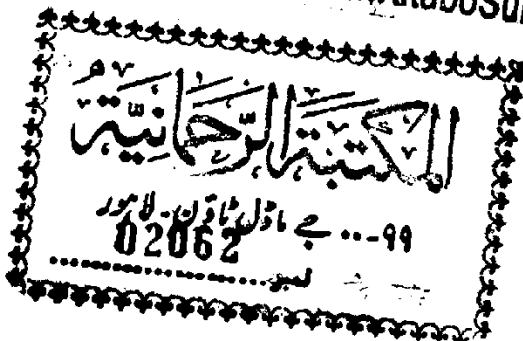 المكتبة الرحمانية
۹۹-... جے ماڈل ٹاؤن - لاہور
02062
نمبر